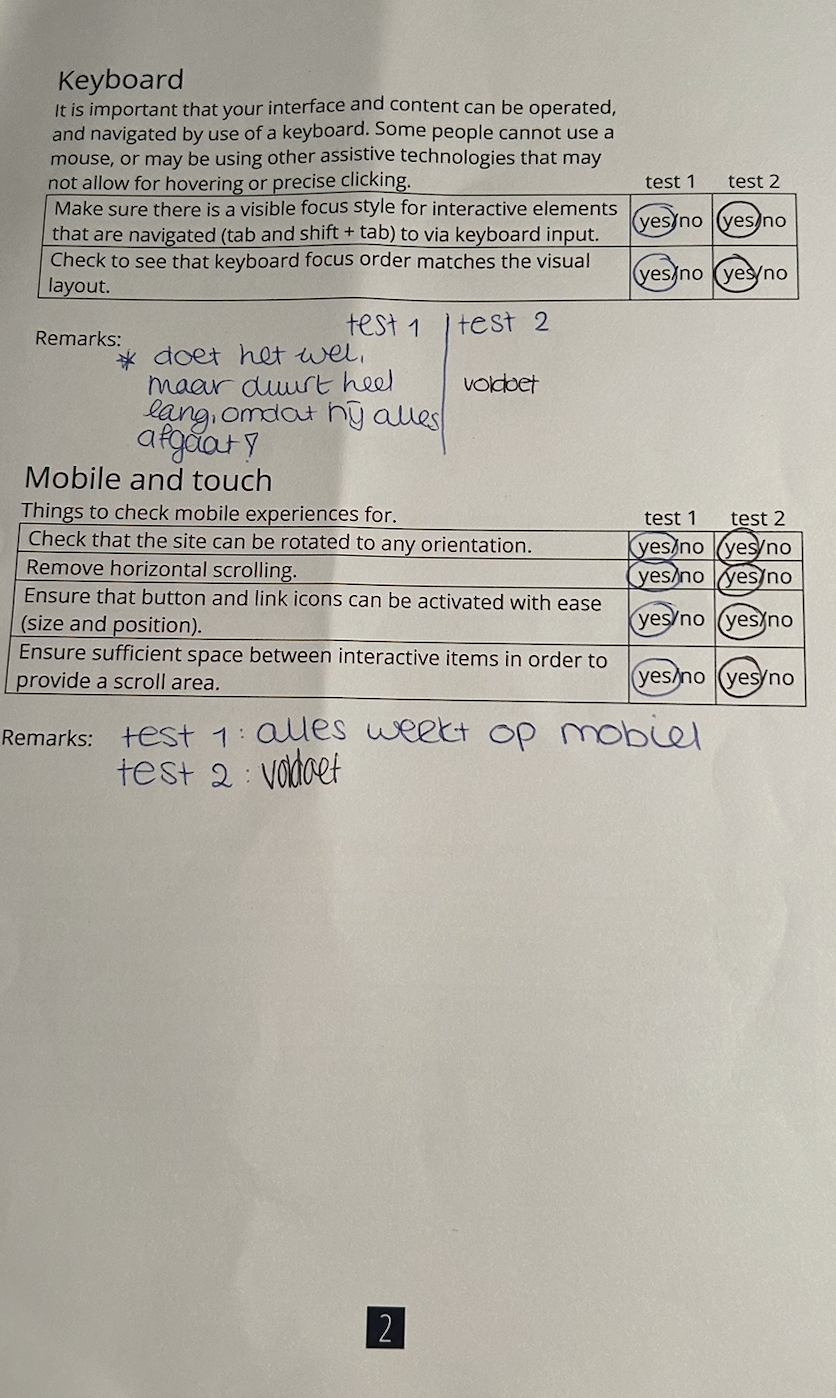 Keyboard
It is important that your interface and content can be operated,
and navigated by use of a keyboard. Some people cannot use a
mouse, or may be using other assistive technologies that may
not allow for hovering or precise clicking. test 1 test 2
Make sure there is a visible focus style for interactive elements
that are navigated (tab and shift + tab) to via keyboard input. yes/no yes/no
Check to see that keyboard focus order matches the visual
layout. yes/no yes/no
Remarks: test 1 | test 2
* doet het wel,
maar duurt heel voldoet
lang, omdat hij alles
afgaat?
Mobile and touch
Things to check mobile experiences for. test 1 test 2
Check that the site can be rotated to any orientation. yes/no yes/no
Remove horizontal scrolling. yes/no yes/no
Ensure that button and link icons can be activated with ease
(size and position). yes/no yes/no
Ensure sufficient space between interactive items in order to
provide a scroll area. yes/no yes/no
Remarks: test 1: alles weekt op mobiel
test 2: voldoet
2